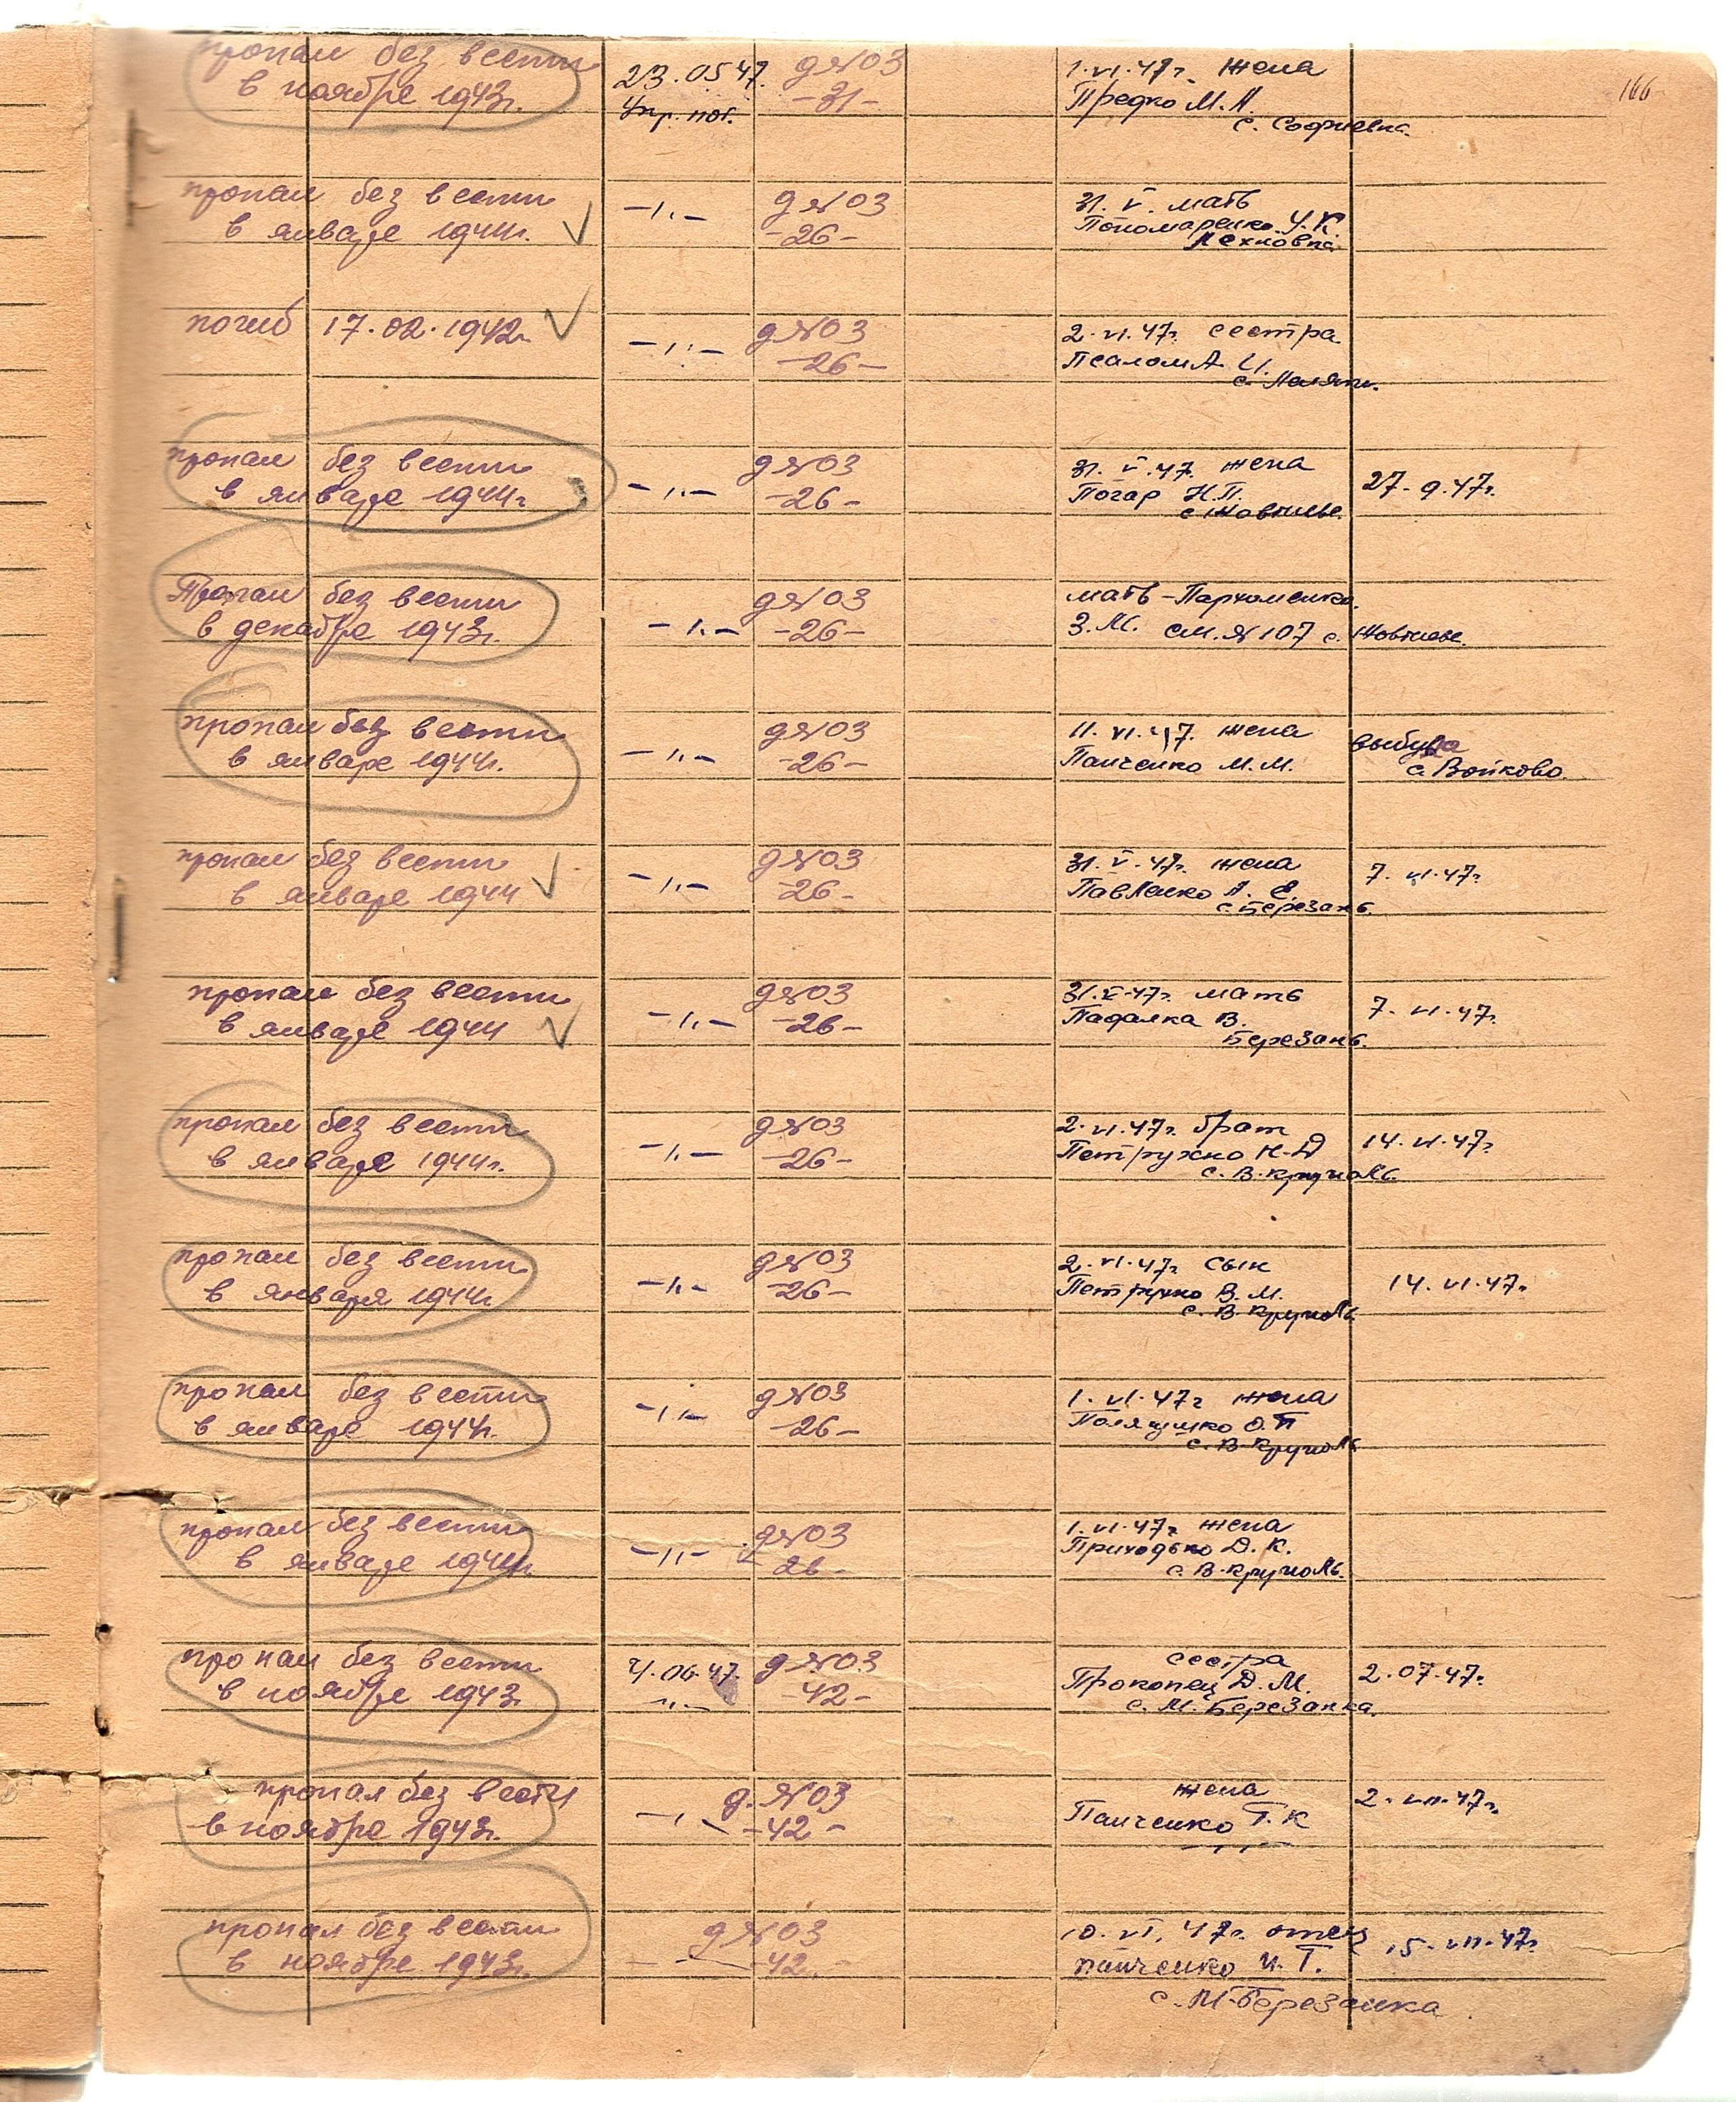 166
пропал без вести
в ноябре 1943г.
23.05.47.
Упр. пог.
д№03
-31-
1.VI.47г. жена
Предко М.А.
с. Софиевка.
пропал без вести
в январе 1944г.
-"-
д№03
-26-
31. V. мать
Пономаренко У.К.
Лехновка
погиб 17.02.1942г.
-"-
д№03
-26-
2.VI.47г. сестра
Псалом А. И.
пропал без вести
в январе 1944г
-"-
д№03
-26-
31. V.47. жена
Погар Н.П.
с Жовтневе.
27.9.47г.
Пропал без вести
в декабре 1943г.
-"-
д№03
-26-
мать - Пархоменко.
З.М. см.№107 с. Жовтневе.
пропал без вести
в январе 1944г.
-"-
д№03
-26-
11.VI.47. жена
Панченко М.М.
выбула
с. Войково
пропал без вести
в январе 1944
-"-
д№03
-26-
31.V.47г. жена
Павленко А. Е.
с. Березань.
7.VI.47г.
пропал без вести
в январе 1944
-"-
д№03
-26-
31.V.47г. мать
Падалка В.
Березань.
7.VI.47г.
пропал без вести
в январе 1944г.
-"-
д№03
-26-
2.VI.47г. брат
Петрухно Н.Д
с. В.Круполь.
14.VI.47г.
пропал без вести
в января 1944г
-"-
д№03
-26-
2.VI.47г. сын
Петрухно В.М.
с. В.Круполь.
14.VI.47г.
пропал без вести
в январе 1944г.
-"-
д№03
-26-
1.VI.47г жена
Полякушко О.П
с. В-Круполь
пропал без вести
в январе 1944г.
-"-
д№03
26-
1.VI.47г. жена
Приходько Д.К.
с. В.Круполь.
пропал без вести
в ноябре 1943г.
4.06.47.
-"-
д №03
-42-
сестра
Прокопец Д.М.
с. М.Березанка.
2.07.47г.
пропал без вести
в ноябре 1943г.
-"-
д. №03
-42-
жена
Панченко Т.К
-"-
2.VII.47г.
пропал без вести
в ноябре 1943г.
-"-
д№03
-42-
10.VI.47г. отец
панченко И.Т.
с. М-Березанка.
15.VII.47г.